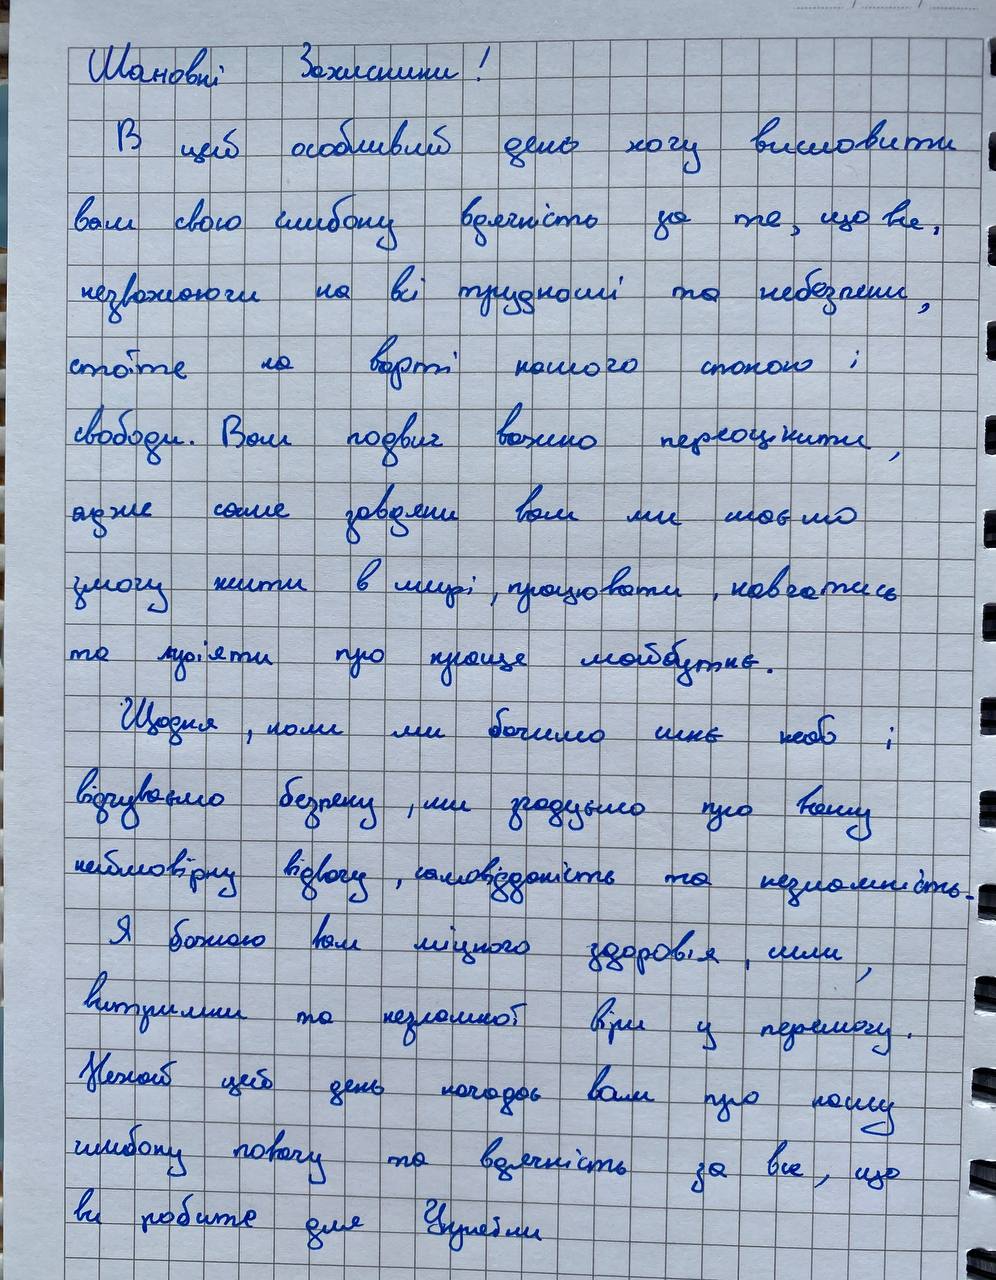 Шановні Захисники!
В цей особливий день хочу висловити
вам свою глибоку вдячність за те, що ви,
незважаючи на всі труднощі та небезпеки,
стоїте на варті нашого спокою і
свободи. Ваш подвиг важко переоцінити,
адже саме завдяки вам ми маємо
змогу жити в мирі, працювати, навчатись
та мріяти про краще майбутнє.
Щодня, коли ми бачимо синє небо і
відчуваємо безпеку, ми згадуємо про вашу
неймовірну відвагу, самовідданість та незламність.
Я бажаю вам міцного здоров'я, сили,
витримки та незламної віри у перемогу.
Нехай цей день нагадає вам про нашу
глибоку повагу та вдячність за все, що
ви робите для України